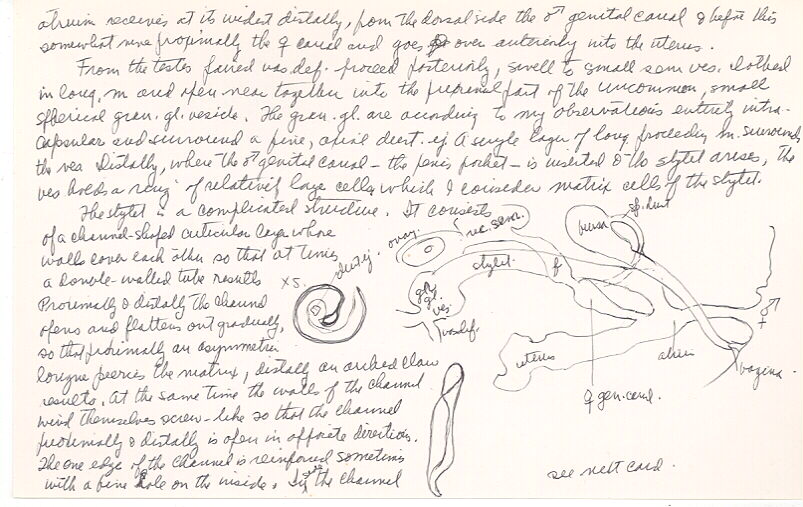 atrium receives at its widest distally, from the dorsal side the ♂ genital canal & before this
somewhat more proximally the ♀ canal and goes over anteriorly into the uterus.
From the testes paired vas. def. proceed posteriorly, swell to small sem ves. clothed
in long. m and open near together into the proximal part of the uncommon, small
spherical gran. gl. vesicle. The gran. gl. are according to my observations entirely intra-
capsular and surround a fine, axial duct. ej. A single layer of long. proceeding m. surrounds
the ves. Distally, where the ♂ genital canal – the penis pocket – is inserted & the stylet arises, the
ves holds a ring of relatively large cells which I consider matrix cells of the stylet.
The stylet is a complicated structure. It consists
of a channel-shaped cuticular layer whose
walls cover each other so that at times
a double-walled tube results
Proximally & distally the channel
opens and flattens out gradually,
so that proximally an asymmetric
tongue pierces the matrix, distally an arched claw
results. At the same time the walls of the channel
wind themselves screw-like so that the channel
proximally & distally is open in opposite directions.
The one edge of the channel is reinforced sometimes
with a fine on the inside. In the channel
xs.
duct. ej.
ovary
rec. sem.
stylet
f
gr.
gl.
ves.
vas def.
bursa
sp. duct
uterus
♀ gen. canal.
atrium
vagina
♂
♀
see next card.